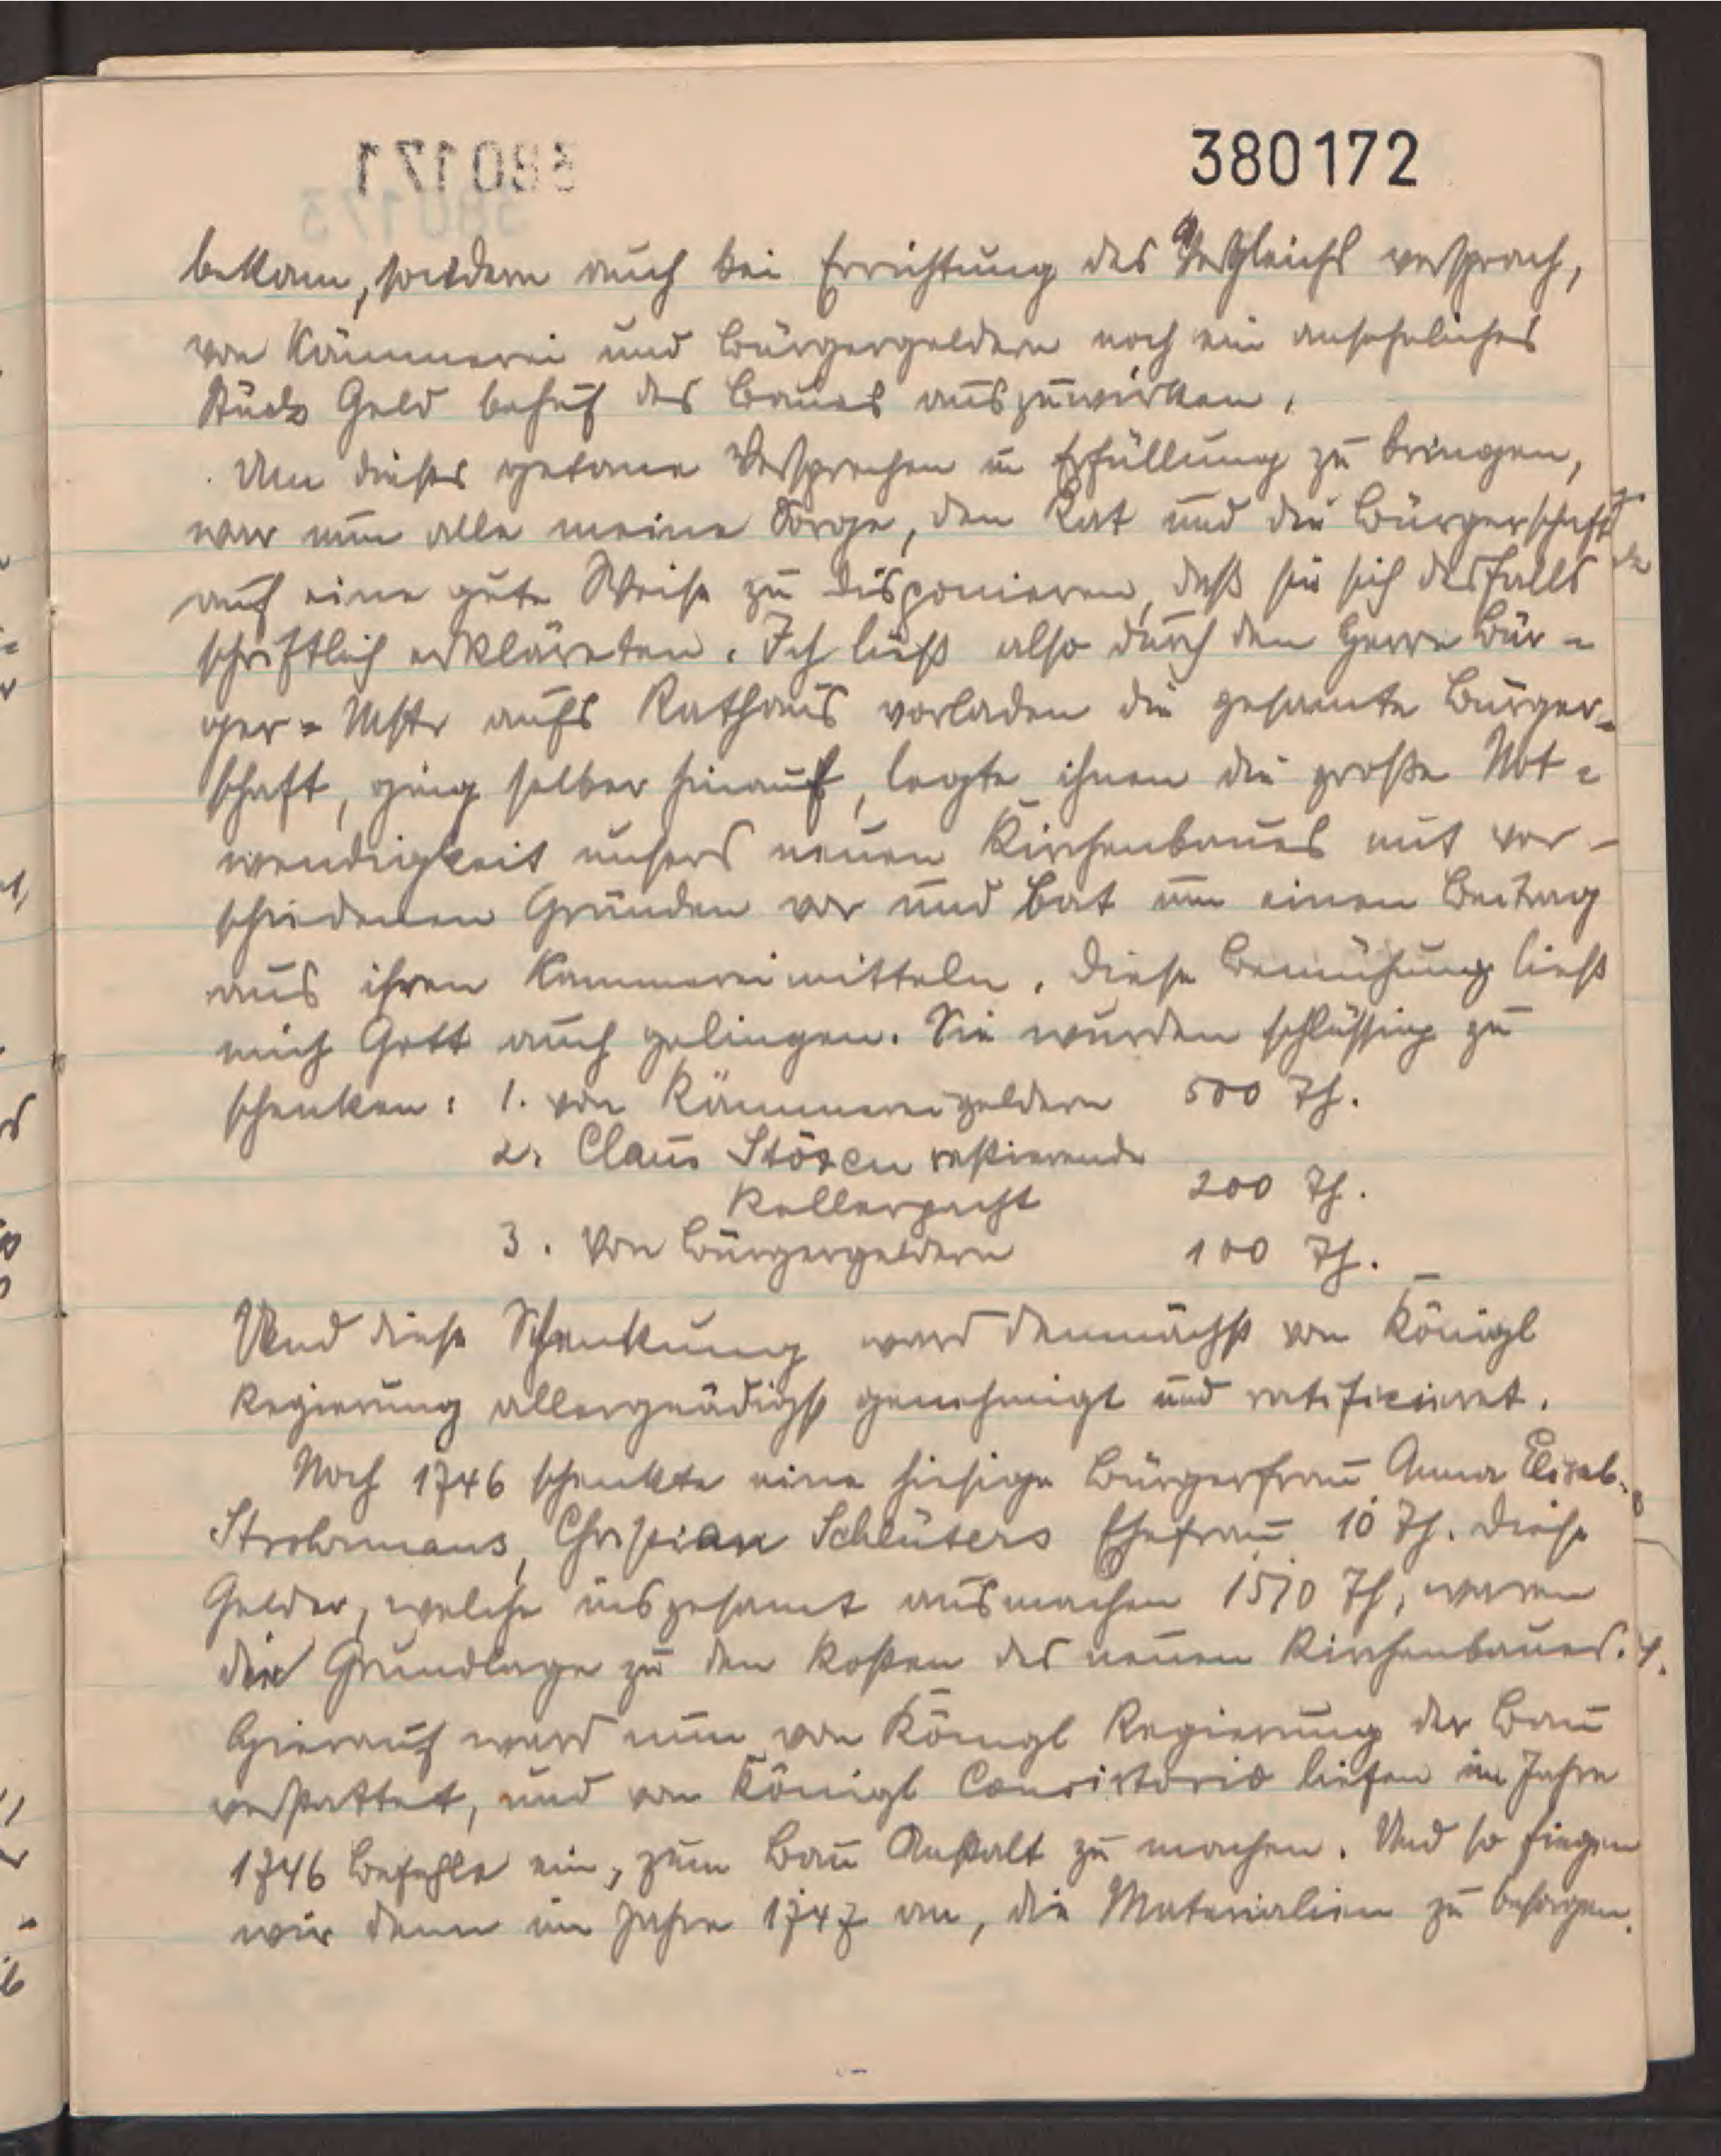 380172
bekam, sondern auch bei Errichtung des Vergleichs versprach,
von Kämmerei und Bürgergeldern noch ein ansehnliches
Stück Geld behuf des Baues auszuwirken.
Um dieses getane Versprechen in Erfüllung zu bringen,
war nun alle meine Sorge, den Rat und die Bürgerschaft
auf eine gute Weise zu disponieren, daß sie sich desfalls
schriftlich erkläreten. Ich ließ also durch den Herrn Bür=
ger=Mstr aufs Rathaus vorladen die gesamte Bürger=
schaft, ging selber hinauf, legte ihnen die große Not=
wendigkeit unsers neuen Kirchenbaues mit ver-
schiedenen Gründen vor und bat um einen Beitrag
aus ihren Kammereimitteln. Diese Bemühung ließ
mich Gott auch gelingen. Sie wurden schlüssig zu
schenken: 1. von Kämmereigeldern 500 Th.
2. Claus Stözen restierende
Kellerpacht 200 Th.
3. Von Bürgergeldern 100 Th.
Und diese Schenkung ward demnächst von Königl
Regierung allergnädigst genehmigt und ratificieret.
Noch 1746 schenkte eine hiesige Bürgerfrau Anna Elisab.
Strohmans, Christian Schlüters Ehefrau 10 Th. Diese
Gelder, welche insgesamt ausmachen 1510 Th, waren
die Grundlage zu den Kosten des neuen Kirchenbaues.
Hierauf ward nun von Königl Regierung der Bau
verstattet, und von Königl Consistorio liefen im Jahre
1746 Befehle ein, zum Bau Anstalt zu machen. Und so fingen
wir denn im Jahre 1747 an, die Materialien zu besorgen.